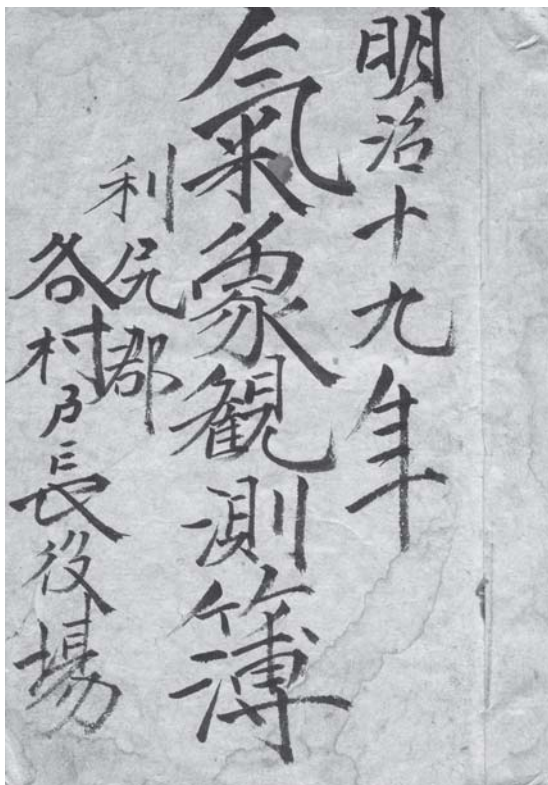 明治十九年
氣象観測簿
利尻郡
各村戸長役場